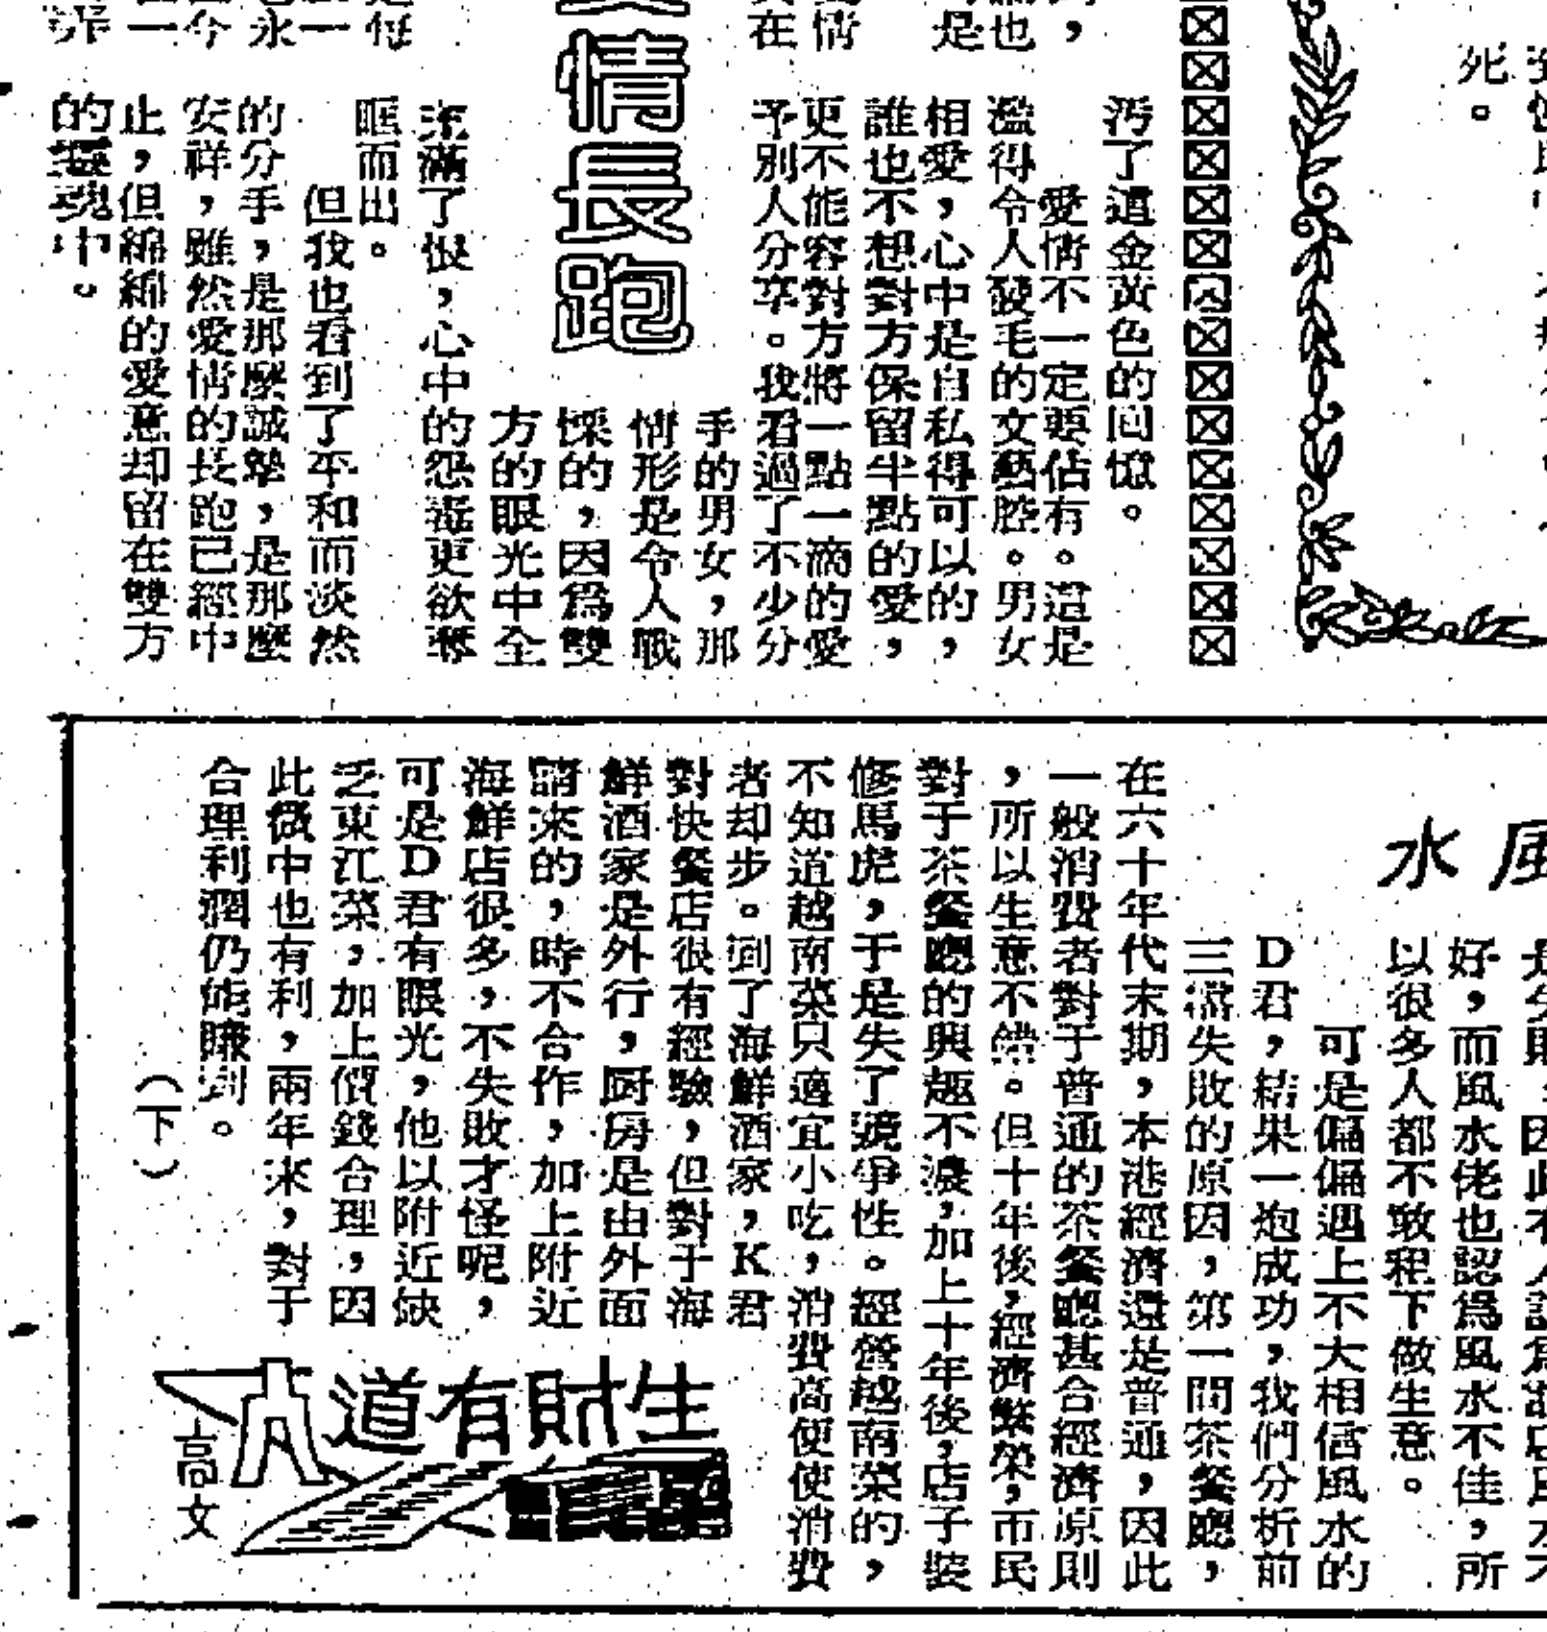 死。
汚了這金黃色的回憶。
愛情不一定要佔有。這是
濫得令人發毛的文藝腔。男女
相愛，心中是自私得可以的，
誰也不想對方保留半點的愛，
更不能容對方將一點一滴的愛
予別人分享。我看過了不少分
手的男女，那
情形是令人戰
慄的，因爲雙
方的眼光中全
充滿了恨，心中的怨毒更欲奪
眶而出。
但我也看到了平和而淡然
的分手，是那麼誠摯，是那麼
安祥，雖然愛情的長跑已經中
止，但綿綿的愛意却留在雙方
的靈魂中。
情長跑
風水
好，而風水佬也認爲風水不佳，所
以很多人都不敢租下做生意。
可是偏偏遇上不大相信風水的
D君，結果一炮成功，我們分析前
三檔失敗的原因，第一間茶餐廳，
在六十年代末期，本港經濟還是普通，因此
一般消費者對于普通的茶餐廳甚合經濟原則
，所以生意不錯。但十年後，經濟繁榮，市民
對于茶餐廳的興趣不濃，加上十年後，店子裝
修馬虎，于是失了競爭性。經營越南菜的，
不知道越南菜只適宜小吃，消費高便使消費
者却步。到了海鮮酒家，K君
對快餐店很有經驗，但對于海
鮮酒家是外行，厨房是由外面
請來的，時不合作，加上附近
海鮮店很多，不失敗才怪呢，
可是D君有眼光，他以附近缺
乏東江菜，加上價錢合理，因
此微中也有利，兩年來，對于
合理利潤仍能賺到。
（下）
生財有道
高文